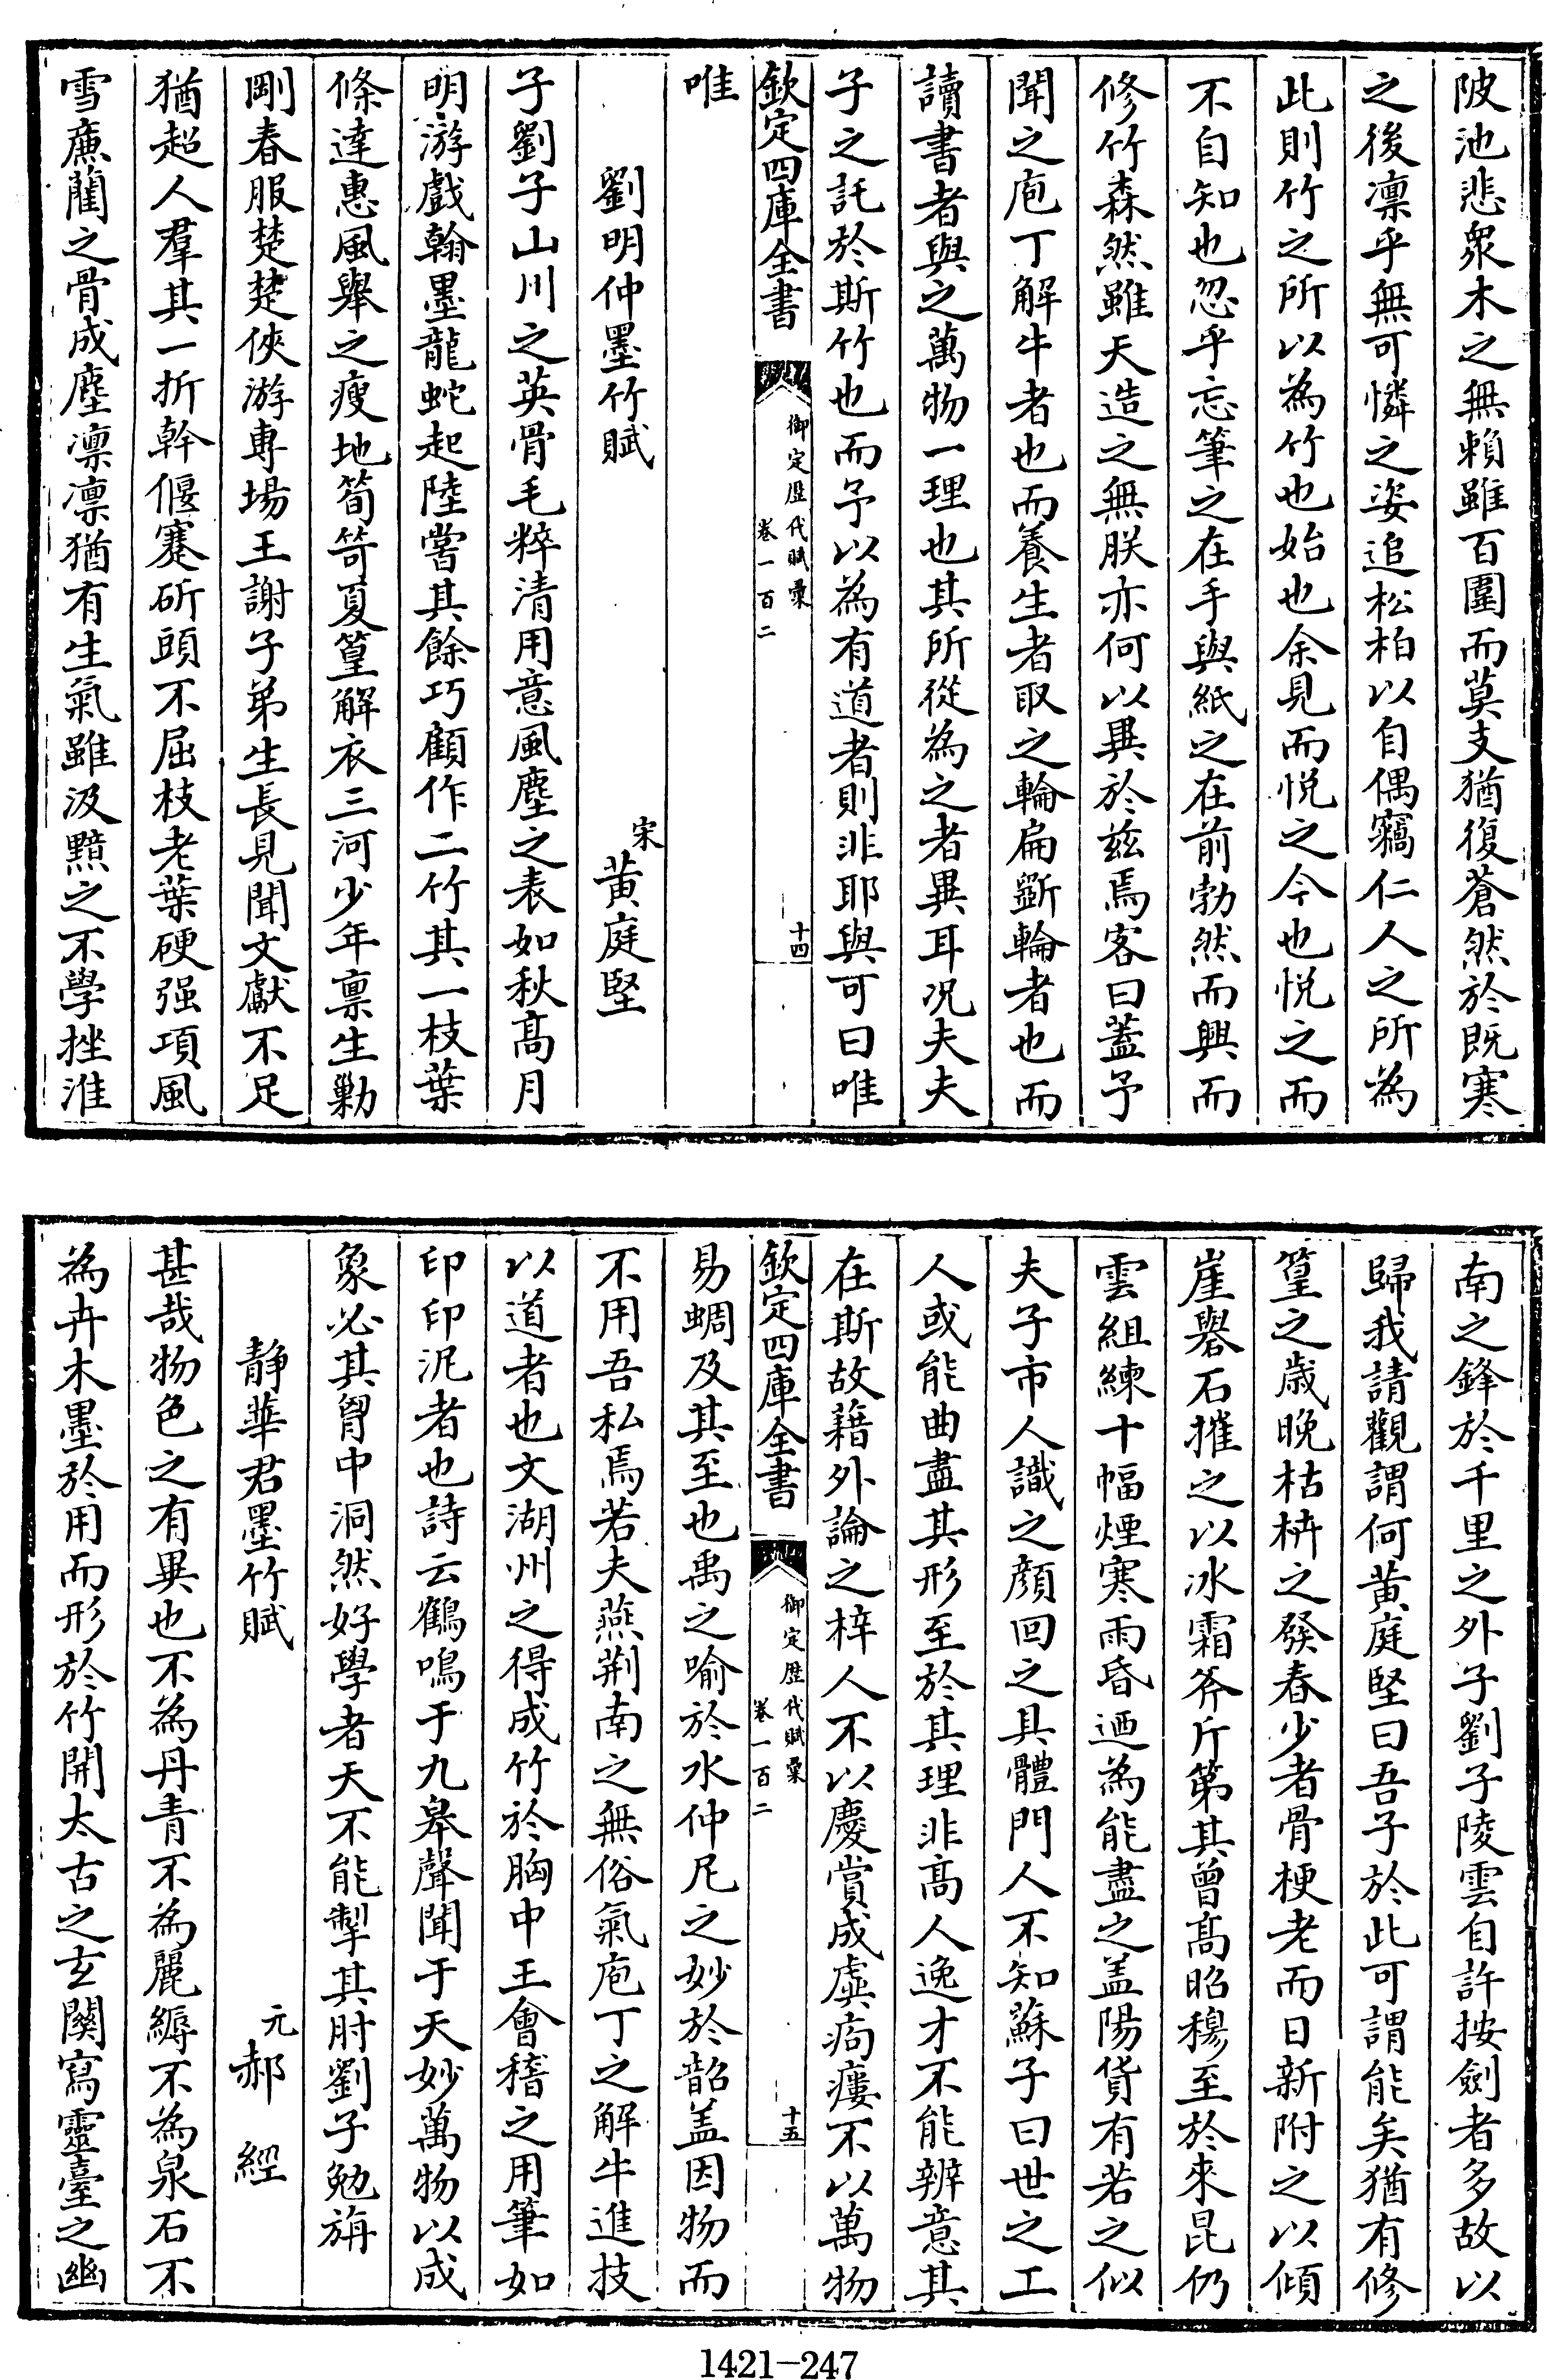 陂池悲衆木之無賴雖百圍而莫支猶復蒼然於既寒
之後凛乎無可憐之姿追松柏以自偶竊仁人之所為
此則竹之所以為竹也始也余見而悦之今也悦之而
不自知也忽乎忘筆之在手與紙之在前勃然而興而
修竹森然雖天造之無朕亦何以異於兹焉客曰蓋予
聞之庖丁解牛者也而養生者取之輪扁斲輪者也而
讀書者與之萬物一理也其所從為之者異耳况夫夫
子之託於斯竹也而予以為有道者則非耶與可曰唯
欽定四庫全書
御定歷代賦彙
卷一百二
十四
唯
劉明仲墨竹賦
宋
黄庭堅
子劉子山川之英骨毛粹清用意風塵之表如秋高月
明游戲翰墨龍蛇起陸嘗其餘巧顧作二竹其一枝葉
條達惠風舉之瘦地筍笴夏篁解衣三河少年禀生勦
剛春服楚楚俠游專場王謝子弟生長見聞文獻不足
猶超人羣其一折幹偃蹇斫頭不屈枝老葉硬强項風
雪廉藺之骨成塵凛凛猶有生氣雖汲黯之不學挫淮
南之鋒於千里之外子劉子陵雲自許按劍者多故以
歸我請觀謂何黄庭堅曰吾子於此可謂能矣猶有修
篁之歲晚枯枿之發春少者骨梗老而日新附之以傾
崖礐石摧之以冰霜斧斤第其曾高昭穆至於來昆仍
雲組練十幅煙寒雨昏迺為能盡之盖陽貨有若之似
夫子市人識之顔回之具體門人不知蘇子曰世之工
人或能曲盡其形至於其理非高人逸才不能辨意其
在斯故藉外論之梓人不以慶賞成虡痀瘻不以萬物
欽定四庫全書
御定歷代賦彙
卷一百二
十五
易蜩及其至也禹之喻於水仲尼之妙於韶盖因物而
不用吾私焉若夫燕荆南之無俗氣庖丁之解牛進技
以道者也文湖州之得成竹於胸中王會稽之用筆如
印印泥者也詩云鶴鳴于九皋聲聞于天妙萬物以成
象必其胷中洞然好學者天不能掣其肘劉子勉旃
静華君墨竹賦
元
郝經
甚哉物色之有異也不為丹青不為麗縟不為泉石不
為卉木墨於用而形於竹開太古之玄關寫靈臺之幽
1421-247